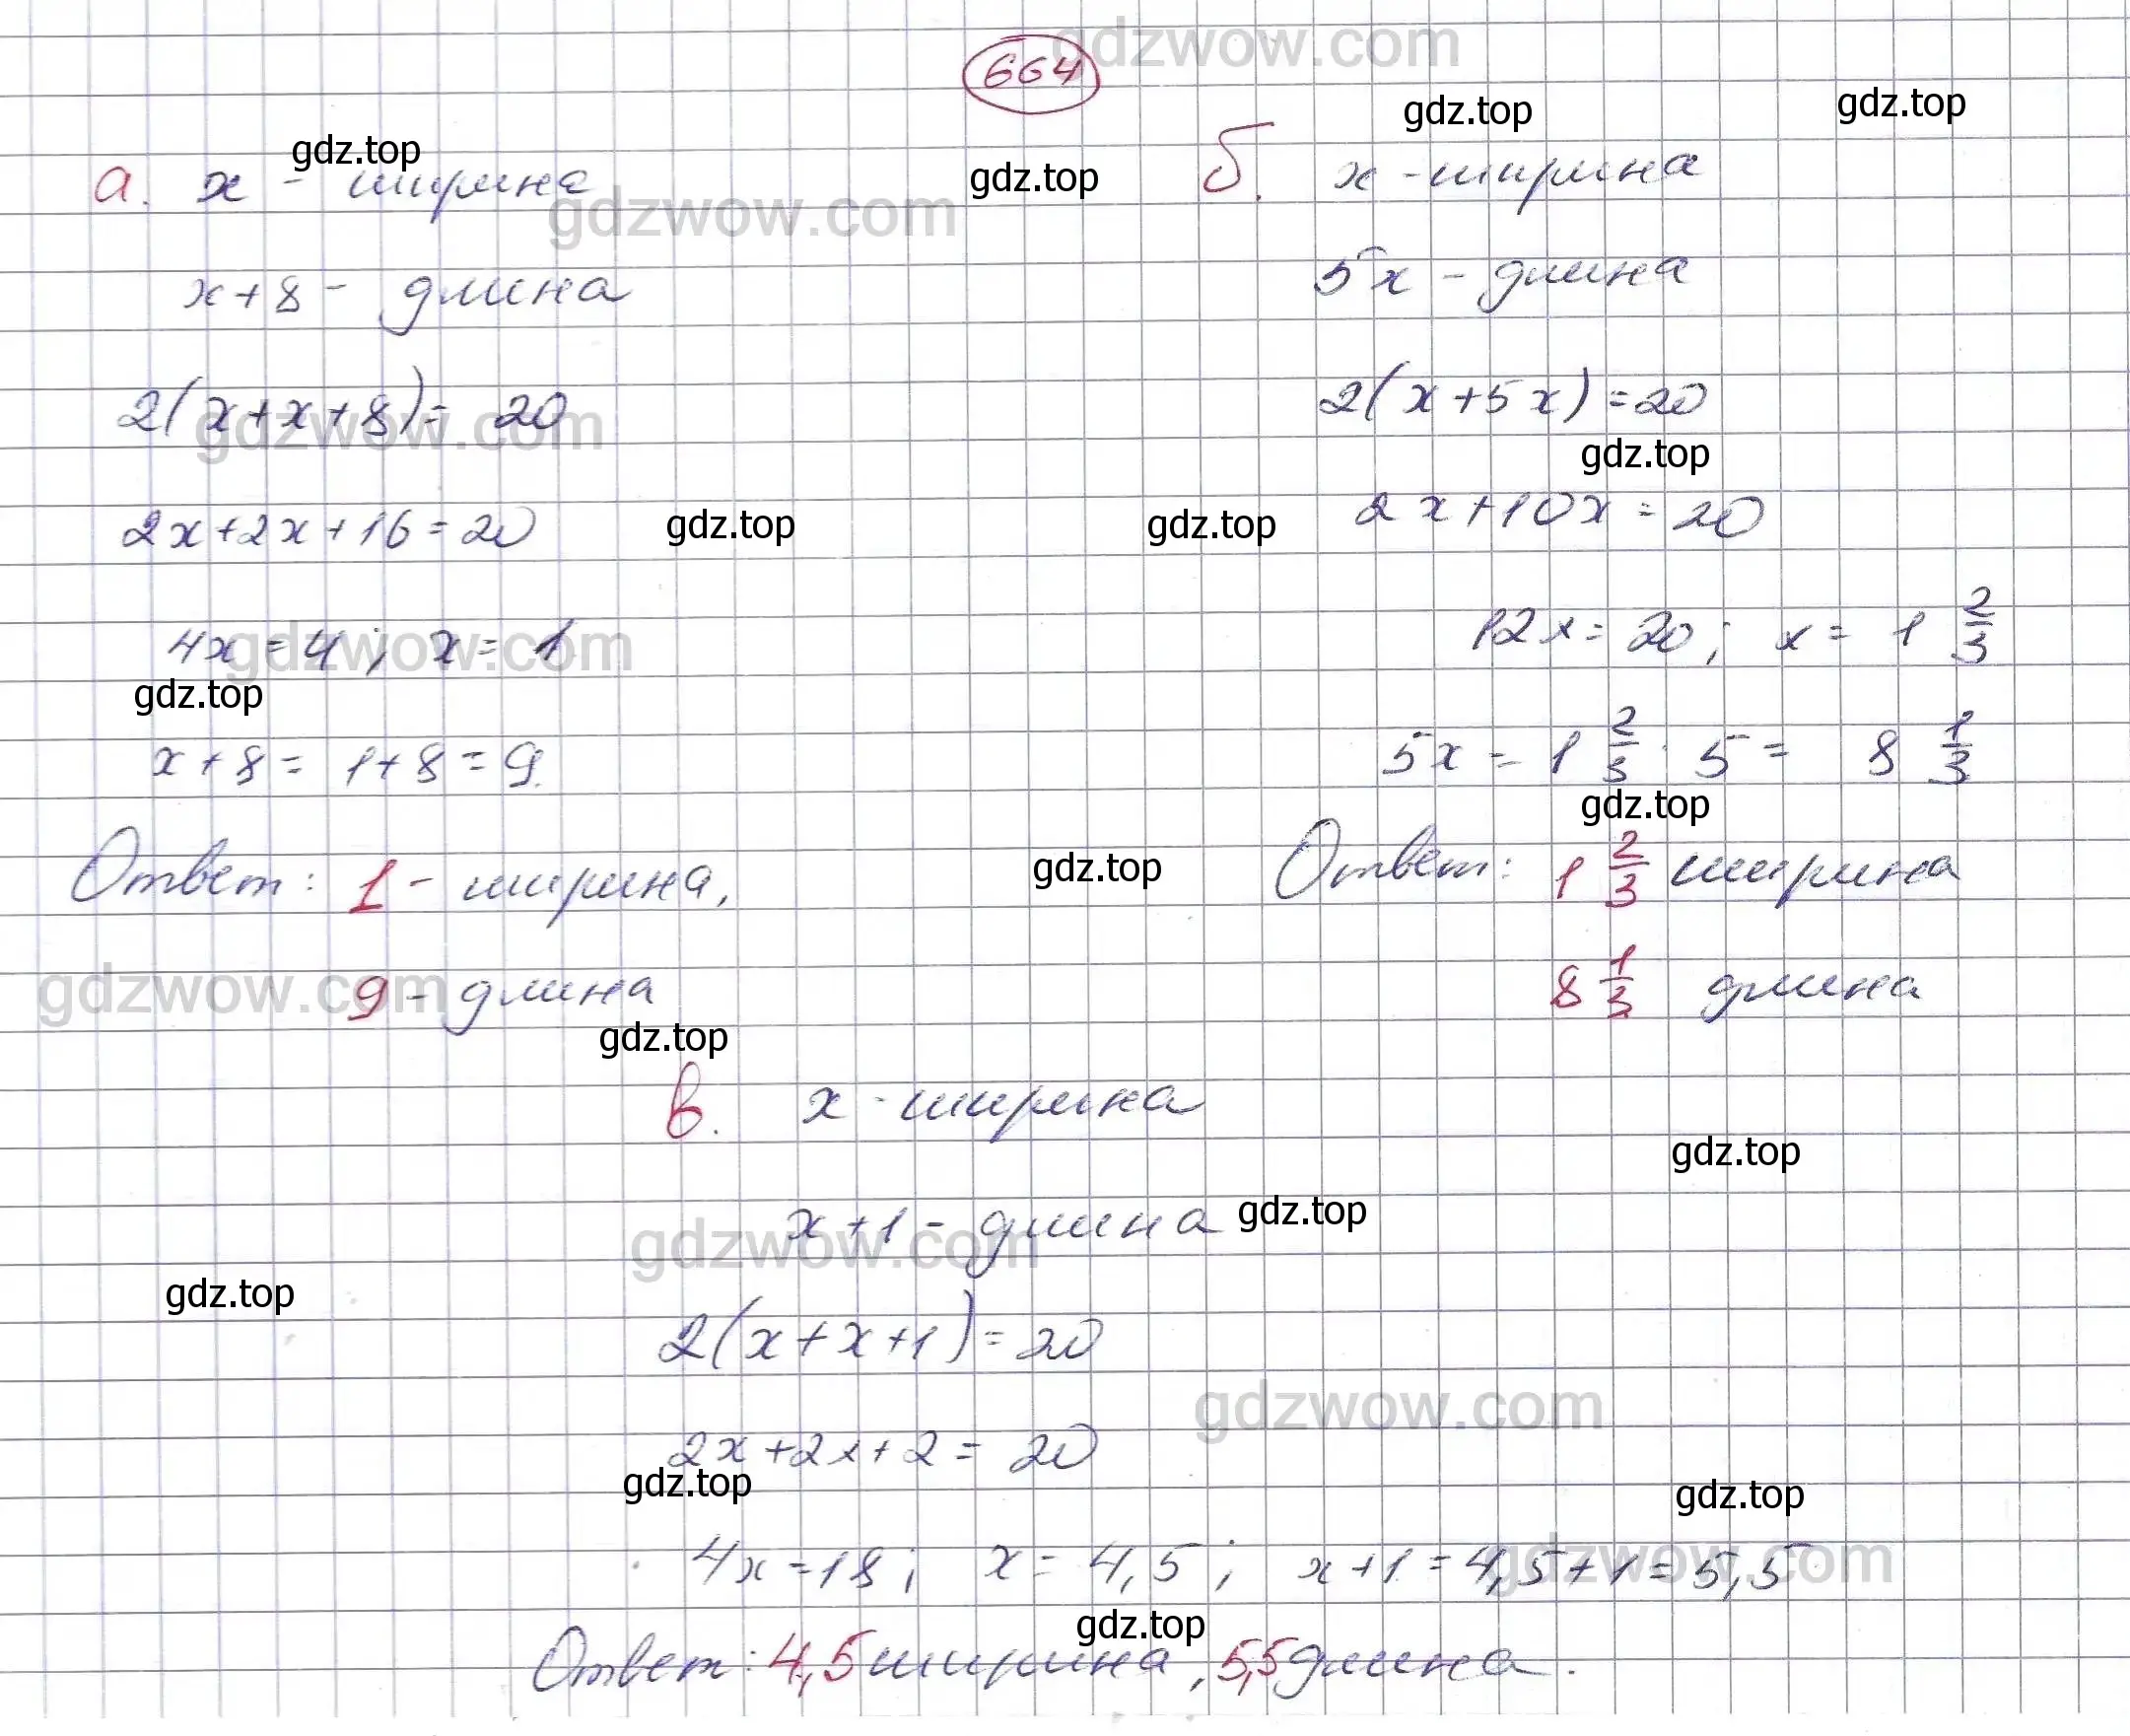 664
а. x - ширина
x+8 - длина
2(x+x+8)= 20
2x+2x+16=20
4x=4; x=1
x+8= 1+8=9.
Ответ: 1 - ширина,
9 - длина
б. x - ширина
5x - длина
2(x+5x)=20
2x+10x=20
12x=20; x= 1 2/3
5x= 1 2/3 · 5= 8 1/3
Ответ: 1 2/3 ширина
8 1/3 длина
в. x - ширина
x+1 - длина
2(x+x+1)=20
2x+2x+2=20
4x=18; x=4,5; x+1=4,5+1=5,5
Ответ: 4,5 ширина, 5,5 длина.
gdzwow.com
gdz.top
gdz.top
gdz.top
gdz.top
gdzwow.com
gdzwow.com
gdz.top
gdz.top
gdz.top
gdzwow.com
gdz.top
gdz.top
gdz.top
gdzwow.com
gdz.top
gdz.top
gdz.top
gdzwow.com
gdz.top
gdzwow.com
gdz.top
gdz.top
gdzwow.com
gdz.top